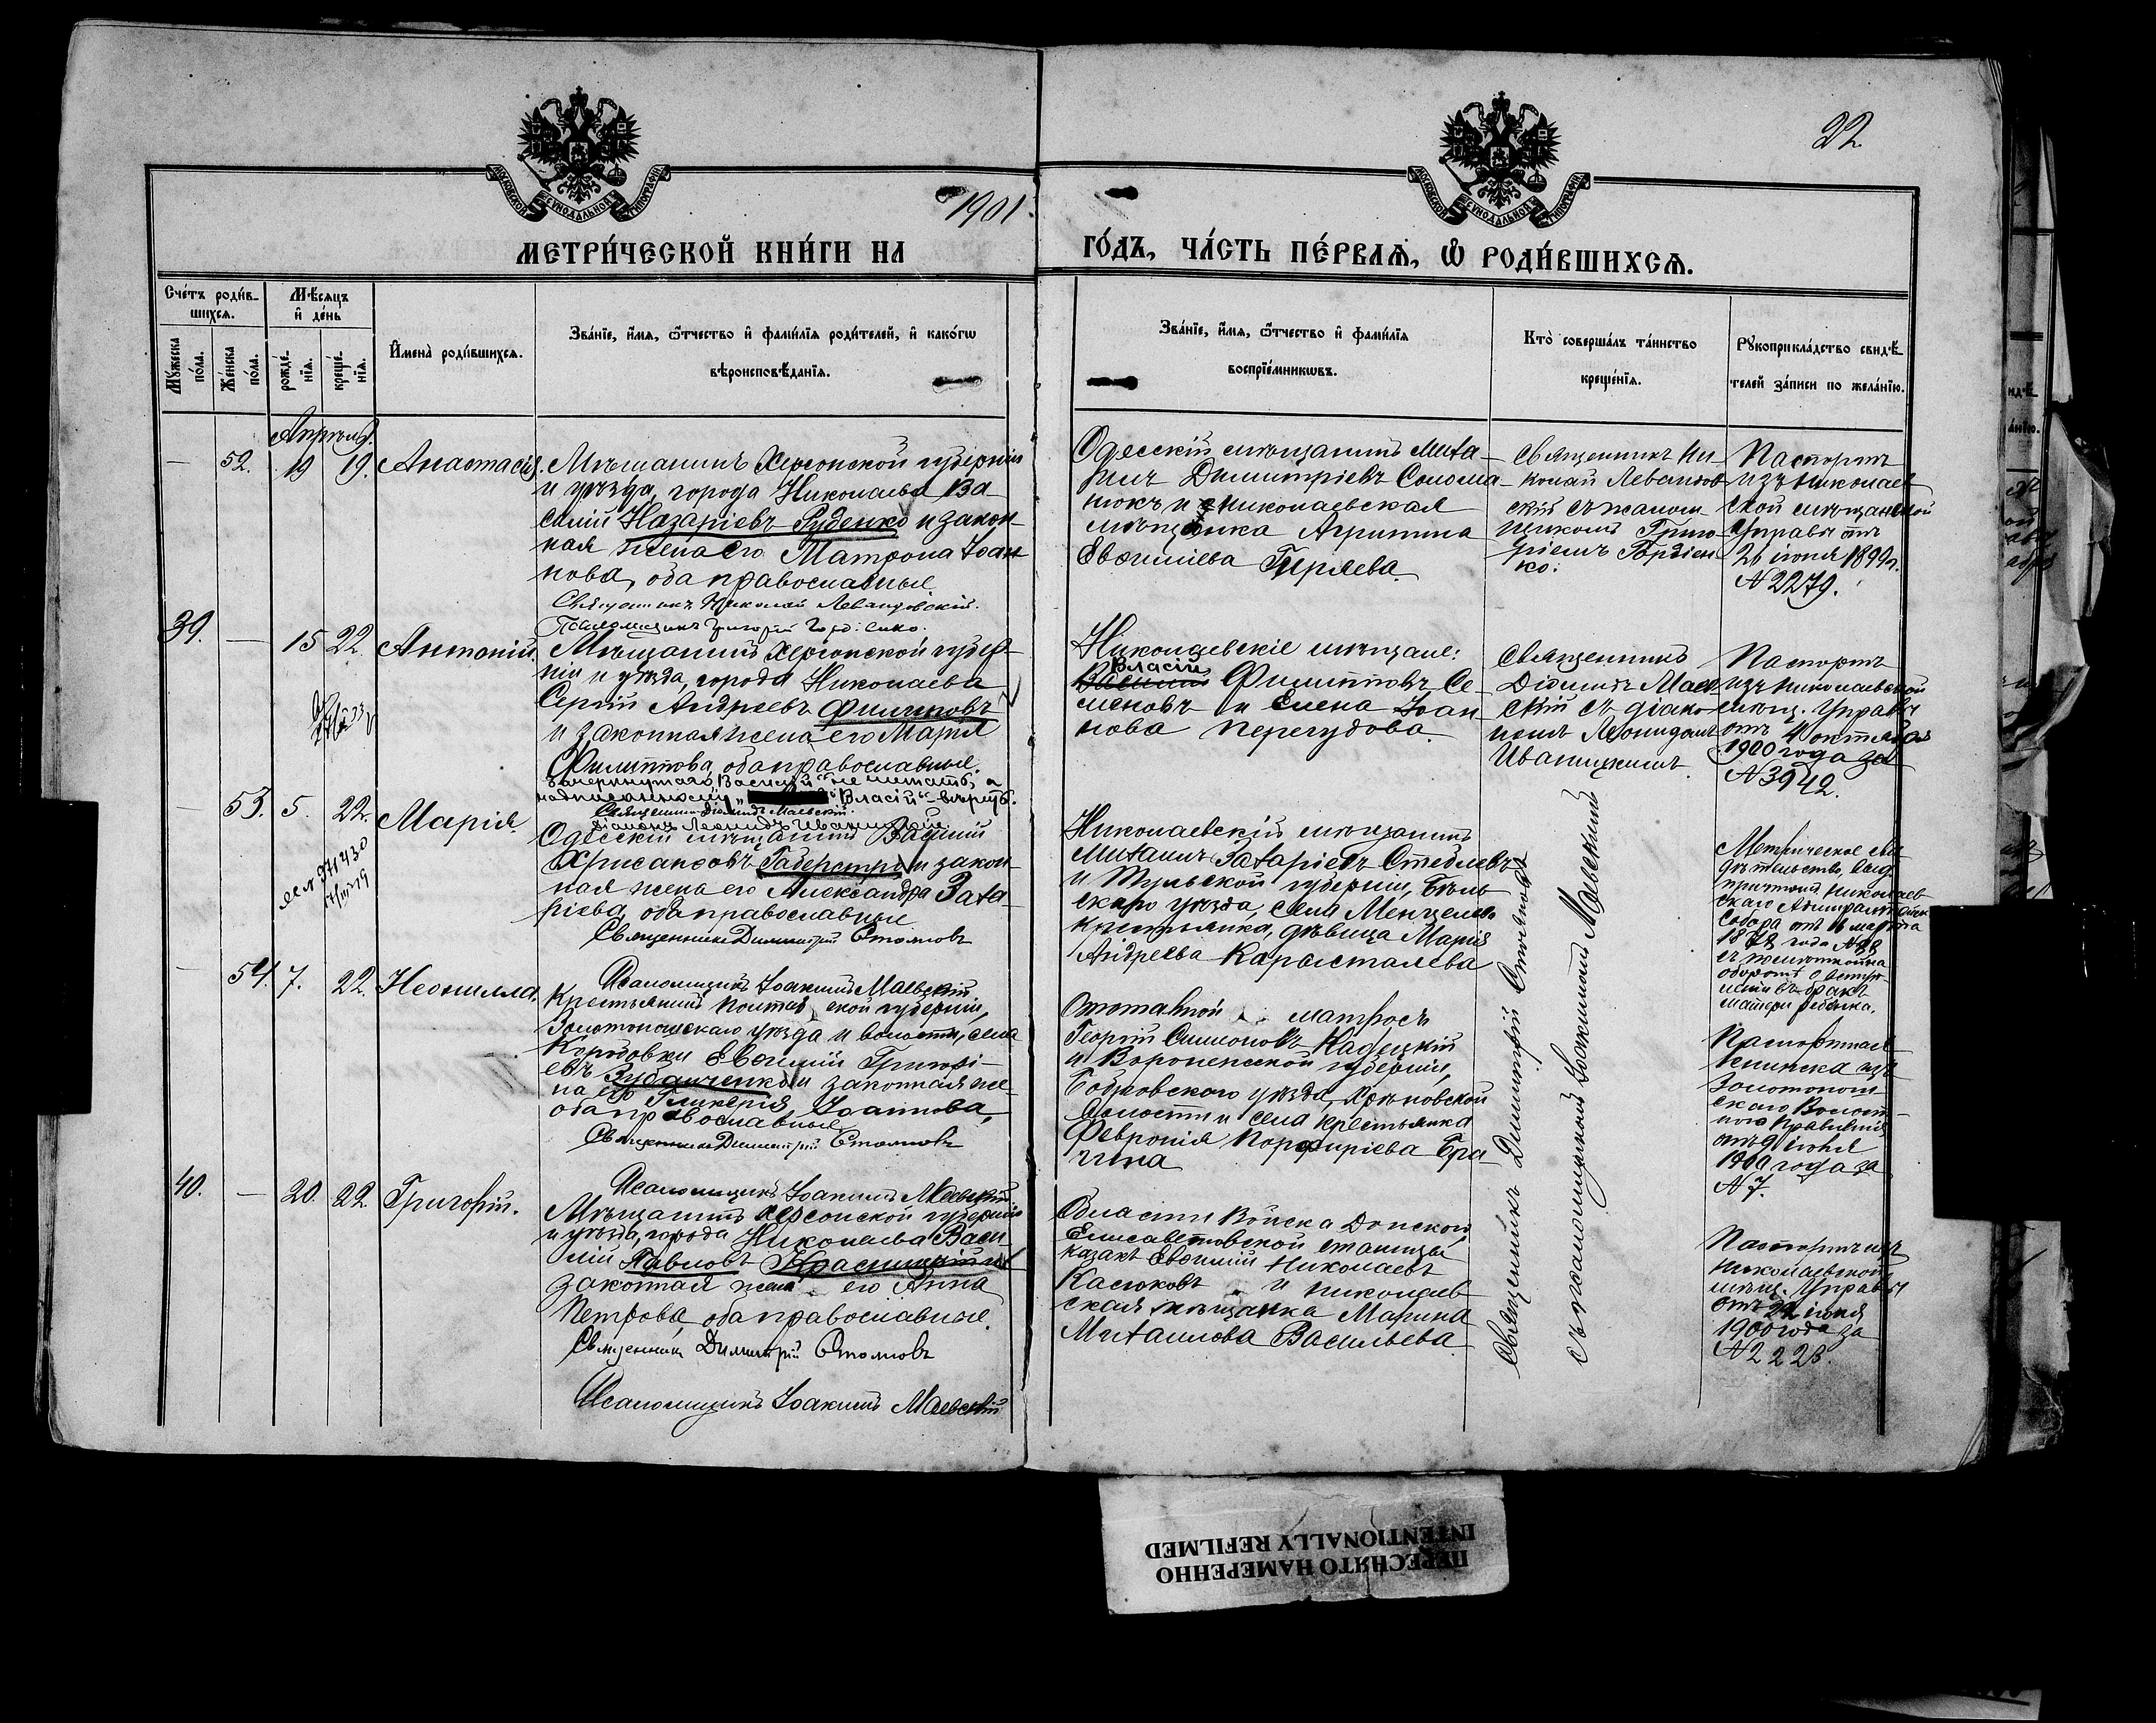 22
МОСКОВСКОЙ СѴНОДАЛЬНОЙ ТИПОГРАФІИ
МОСКОВСКОЙ СѴНОДАЛЬНОЙ ТИПОГРАФІИ
1901
МЕТРИ́ЧЕСКОЙ КНИ́ГИ НА
ГО́ДЪ, ЧА́СТЬ ПЕ́РВАѦ, Ѡ҆ РОДИ́ВШИХСѦ.
Сче́тъ роди́в-
шихсѧ.
Мꙋ́жеска по́ла.
Же́нска по́ла.
Мѣ́сѧцъ
и҆ де́нь
рожде́нїѧ.
креще́нїѧ.
И҆мена̀ роди́вшихсѧ.
Зва́нїе, и҆́мѧ, ѻ҆́тчество и҆ фами́лїѧ роди́телей, и҆ како́гѡ
вѣроисповѣ́данїѧ.
Зва́нїе, и҆́мѧ, ѻ҆́тчество и҆ фами́лїѧ
воспрїе́мникѡвъ.
Кто̀ соверша́лъ та́инство
креще́нїѧ.
Рꙋкоприкла́дство свидѣ́-
телей за́писи по жела́нїю.
Апрѣль.
52. 19 19. Анастасія.
Мѣщанинъ Херсонской губерніи
и уѣзда, города Николаева Ва-
силій Назаріевъ Руденко и закон-
ная жена его Матрона Іоан-
нова, оба православные
Священникъ Николай Левандовскій.
Псаломщикъ Григорій Гордіенко.
Одесскій мѣщанинъ Миха-
илъ Димитріевъ Солома-
нюкъ и Николаевская
мѣщанка Агрипина
Евѳиміева Гиряева.
Священникъ Ни-
колай Левандов-
скій съ псалом-
щикомъ Григо-
ріемъ Гордіен-
ко.
Паспортъ
изъ Николаев-
ской мѣщанской
Управы отъ
26 іюня 1899 г.
№ 2279.
39. 15 22. Антоній.
Мѣщанинъ Херсонской губер-
ніи и уѣзда, города Николаева
Сергій Андреевъ Филиповъ
и законная жена его Марія
Филиппова, оба православные.
Зачеркнутаго „Василій“ не читать, а
надписанному „Власій“ - вѣрить.
Священникъ Діомидъ Маевскій
Діаконъ Леонидъ Иваницкій.
Николаевскіе мѣщане:
Власій
Василій Филипповъ Се-
меновъ и Елена Іоан-
нова Перегудова.
Священникъ
Діомидъ Маев-
скій съ діако-
номъ Леонидомъ
Иваницкимъ.
Паспортъ
изъ Николаевской
мѣщ. Управы
отъ 4 октября
1900 года за
№ 3942.
53. 5. 22. Марія.
Одесскій мѣщанинъ Василій
Хрисанѳовъ и закон-
ная жена его Александра Заха-
ріева, оба православные
Священникъ Димитрій Стояновъ
Псаломщикъ Іоакимъ Маевскій
Николаевскій мѣщанинъ
Михаилъ Захаріевъ
и Тульской губерніи, Бѣлев-
скаго уѣзда, села
крестьянка, дѣвица Марія
Андреева Карысталева
Священникъ Димитрій Стояновъ
съ псаломщикомъ Іоакимомъ Маевскимъ
Метрическое сви-
дѣтельство, выд.
причтомъ Николаев-
скаго Адмиралтейск.
Собора отъ 16 марта
1878 года № 98
матери ребенка.
54. 7. 22. Неонилла.
Крестьянинъ Полтавской губерніи,
Золотоношскаго уѣзда и волости, села
Коробовки Евѳимій Григорі-
евъ Зубанченко и законная же-
на его Гликерія Іоаннова,
оба православные
Священникъ Димитрій Стояновъ
Псаломщикъ Іоакимъ Маевскій
матросъ
Георгій Симоновъ Кадецкій
и Воронежской губерніи,
Бобровскаго уѣзда, Хрѣновской
волости и села крестьянка
Февронія Порфиріева Бра-
гина
Паспортная
книжка изъ
Золотонош-
скаго Волост-
ного Правленія
отъ 9 іюня
1900 года за
№ 7.
40. 20. 22. Григорій.
Мѣщанинъ Херсонской губерніи
и уѣзда, города Николаева Васи-
лій Павловъ Красицкій и
законная жена его Анна
Петрова, оба православные.
Священникъ Димитрій Стояновъ
Псаломщикъ Іоакимъ Маевскій
Области Войска Донского
Елисаветовской станицы
казакъ Евѳимій Николаевъ
Касюковъ и Николаев-
ская мѣщанка Марина
Михаилова Васильева
Паспортъ изъ
Николаевской
мѣщ. Управы
отъ 22 іюня
1900 года за
№ 2223.
ПЕРЕСНЯТО НАМЕРЕННО
INTENTIONALLY REFILMED